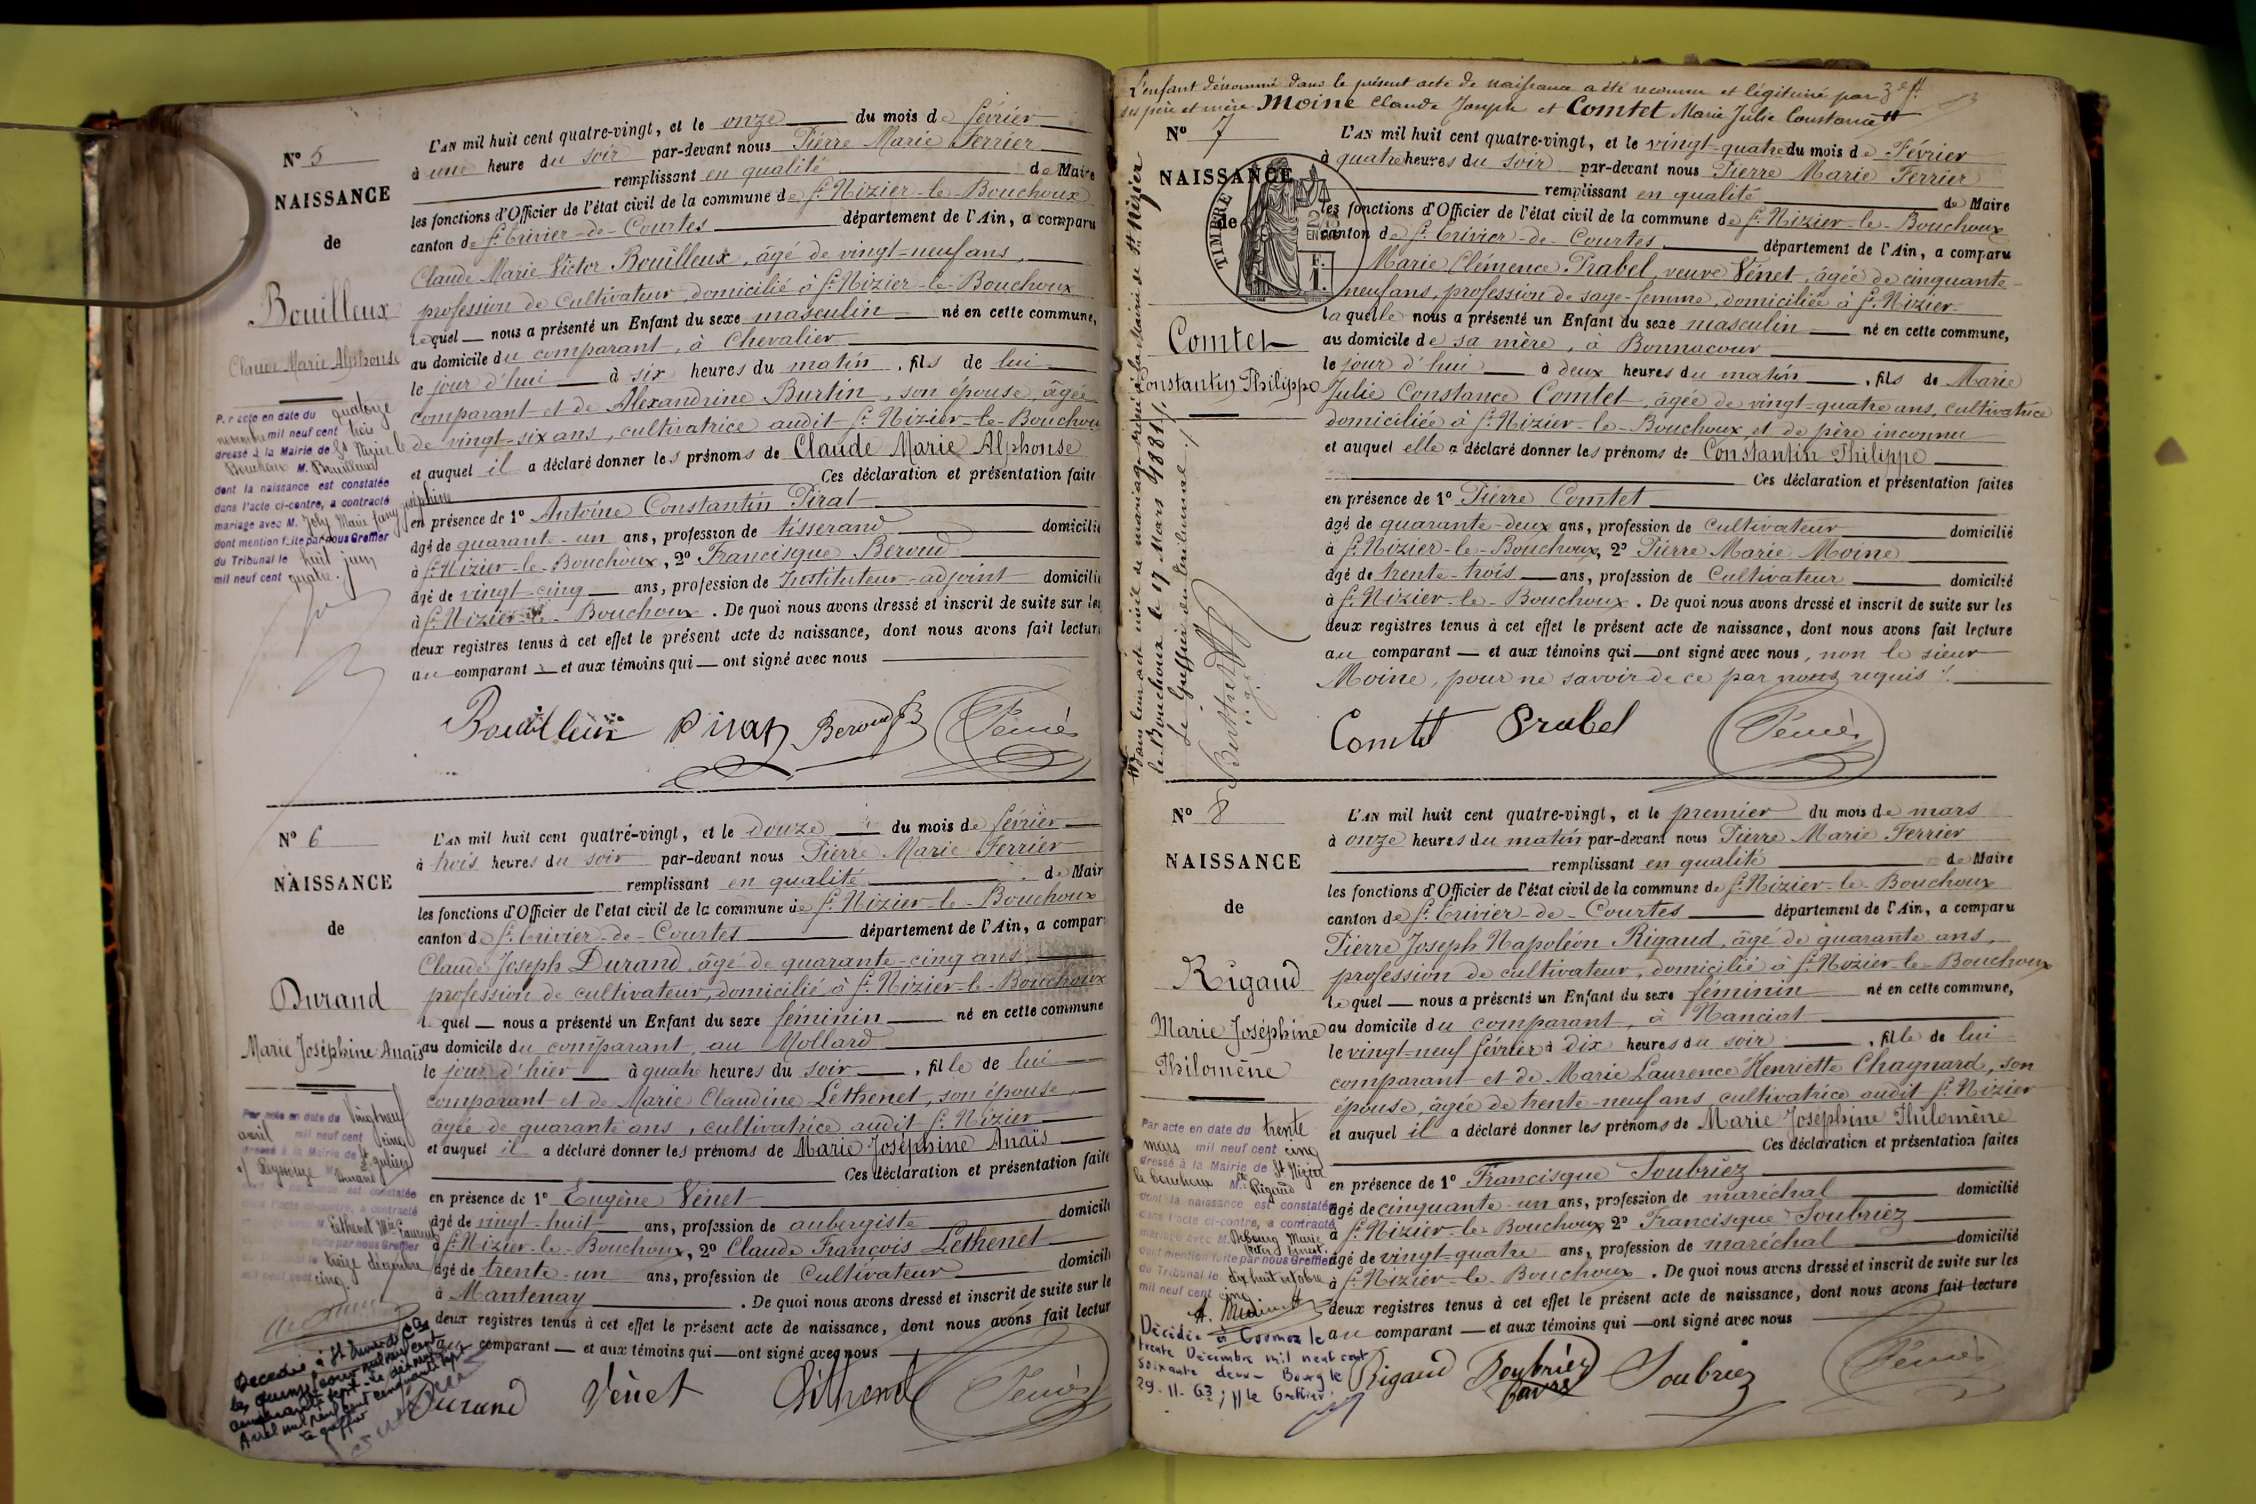 N° 5
NAISSANCE
de
Bouilleux
Claude Marie Alphonse
P.r acte en date du quatorze
novembre mil neuf cent trois
dressé à la Mairie de St Nizier le
Bouchoux M. Bouilleux
dont la naissance est constatée
dans l'acte ci-contre, a contracté
mariage avec M. Joly Marie Fany Joséphine
dont mention faite par nous Greffier
du Tribunal le huit juin
mil neuf cent quatre.
L'AN mil huit cent quatre-vingt, et le onze du mois de février
à une heure du soir par-devant nous Pierre Marie Ferrier
remplissant en qualité de Maire
les fonctions d'Officier de l'état civil de la commune de St Nizier-le-Bouchoux
canton de St Trivier-de-Courtes département de l'Ain, a comparu
Claude Marie Victor Bouilleux, âgé de vingt-neuf ans,
profession de cultivateur, domicilié à St Nizier-le-Bouchoux
lequel nous a présenté un Enfant du sexe masculin né en cette commune,
au domicile du comparant, à Chevalier
le jour d'hui à six heures du matin, fils de lui
comparant et de Alexandrine Burtin, son épouse, âgée
de vingt-six ans, cultivatrice audit St Nizier-le-Bouchoux
et auquel il a déclaré donner les prénoms de Claude Marie Alphonse
Ces déclaration et présentation faites
en présence de 1° Antoine Constantin Pirat
âgé de quarante-un ans, profession de tisserand domicilié
à St Nizier-le-Bouchoux, 2° Francisque Beroud
âgé de vingt-cinq ans, profession de Instituteur-adjoint domicilié
à St Nizier-le-Bouchoux. De quoi nous avons dressé et inscrit de suite sur les
deux registres tenus à cet effet le présent acte de naissance, dont nous avons fait lecture
au comparant et aux témoins qui ont signé avec nous
Bouilleux Pirat Beroud Ferrier
N° 6
NAISSANCE
de
Durand
Marie Joséphine Anaïs
Par acte en date du vingt neuf
avril mil neuf cent cinq
dressé à la Mairie de St Julien
s/ Reyssouze M Durand
dont la naissance est constatée
dans l'acte ci-contre, a contracté
mariage avec M. Lethenet Mie Laurent
dont mention faite par nous Greffier
du Tribunal le treize décembre
mil neuf cent cinq
L'AN mil huit cent quatre-vingt, et le douze du mois de février
à trois heures du soir par-devant nous Pierre Marie Ferrier
remplissant en qualité de Maire
les fonctions d'Officier de l'état civil de la commune de St Nizier-le-Bouchoux
canton de St Trivier-de-Courtes département de l'Ain, a comparu
Claude Joseph Durand, âgé de quarante-cinq ans,
profession de cultivateur, domicilié à St Nizier-le-Bouchoux
lequel nous a présenté un Enfant du sexe féminin né en cette commune
au domicile du comparant, au Mollard
le jour d'hier à quatre heures du soir, fille de lui
comparant et de Marie Claudine Lethenet, son épouse,
âgée de quarante ans, cultivatrice audit St Nizier
et auquel il a déclaré donner les prénoms de Marie Joséphine Anaïs
Ces déclaration et présentation faites
en présence de 1° Eugène Vénet
âgé de vingt-huit ans, profession de aubergiste domicilié
à St Nizier-le-Bouchoux, 2° Claude François Lethenet
âgé de trente-un ans, profession de Cultivateur domicilié
à Mantenay. De quoi nous avons dressé et inscrit de suite sur les
deux registres tenus à cet effet le présent acte de naissance, dont nous avons fait lecture
au comparant et aux témoins qui ont signé avec nous
Durand Vénet Lethenet Ferrier
L'enfant dénommé dans le présent acte de naissance a été reconnu et légitimé par
ses père et mère Moine Claude Joseph et Comtet Marie Julie Constance
dans leur acte civil de mariage reçu à la Mairie de St Nizier
le Bouchoux le 17 Mars 1881.
Le Greffier du Tribunal :
N° 7
NAISSANCE
de
TIMBRE
Comtet
Constantin Philippe
L'AN mil huit cent quatre-vingt, et le vingt-quatre du mois de Février
à quatre heures du soir par-devant nous Pierre Marie Ferrier
remplissant en qualité de Maire
les fonctions d'Officier de l'état civil de la commune de St Nizier-le-Bouchoux
canton de St Trivier-de-Courtes département de l'Ain, a comparu
Marie Clémence Prabel, veuve Vénet, âgée de cinquante-
neuf ans, profession de sage-femme, domiciliée à St Nizier
laquelle nous a présenté un Enfant du sexe masculin né en cette commune,
au domicile de sa mère, à Bonnacour
le jour d'hui à deux heures du matin, fils de Marie
Julie Constance Comtet, âgée de vingt-quatre ans, cultivatrice
domiciliée à St Nizier-le-Bouchoux, et de père inconnu
et auquel elle a déclaré donner les prénoms de Constantin Philippe
Ces déclaration et présentation faites
en présence de 1° Pierre Comtet
âgé de quarante-deux ans, profession de cultivateur domicilié
à St Nizier-le-Bouchoux, 2° Pierre Marie Moine
âgé de trente-trois ans, profession de Cultivateur domicilié
à St Nizier-le-Bouchoux. De quoi nous avons dressé et inscrit de suite sur les
deux registres tenus à cet effet le présent acte de naissance, dont nous avons fait lecture
au comparant et aux témoins qui ont signé avec nous, non le sieur
Moine, pour ne savoir de ce par nous requis.
Comtet Prabel Ferrier
N° 8
NAISSANCE
de
Rigaud
Marie Joséphine
Philomène
Par acte en date du trente
mars mil neuf cent cinq
dressé à la Mairie de St Nizier
le bouchoux M. Rigaud
dont la naissance est constatée
dans l'acte ci-contre, a contracté
mariage avec M. Debourg Marie
dont mention faite par nous Greffier
du Tribunal le dix huit octobre
mil neuf cent cinq
Décédée à Cormoz le
trente Décembre mil neuf cent
soixante deux - Bourg le
29-11-63 ; // le Greffier
L'AN mil huit cent quatre-vingt, et le premier du mois de mars
à onze heures du matin par-devant nous Pierre Marie Ferrier
remplissant en qualité de Maire
les fonctions d'Officier de l'état civil de la commune de St Nizier-le-Bouchoux
canton de St Trivier-de-Courtes département de l'Ain, a comparu
Pierre Joseph Napoléon Rigaud, âgé de quarante ans,
profession de cultivateur, domicilié à St Nizier-le-Bouchoux
lequel nous a présenté un Enfant du sexe féminin né en cette commune,
au domicile du comparant, à Nanciat
le vingt-neuf février à dix heures du soir, fille de lui
comparant et de Marie Laurence Henriette Chagnard, son
épouse, âgée de trente-neuf ans, cultivatrice audit St Nizier
et auquel il a déclaré donner les prénoms de Marie Joséphine Philomène
Ces déclaration et présentation faites
en présence de 1° Francisque Soubriez
âgé de cinquante-un ans, profession de maréchal domicilié
à St Nizier-le-Bouchoux 2° Francisque Soubriez
âgé de vingt-quatre ans, profession de maréchal domicilié
à St Nizier-le-Bouchoux. De quoi nous avons dressé et inscrit de suite sur les
deux registres tenus à cet effet le présent acte de naissance, dont nous avons fait lecture
au comparant et aux témoins qui ont signé avec nous
Rigaud Soubriez Soubriez Ferrier